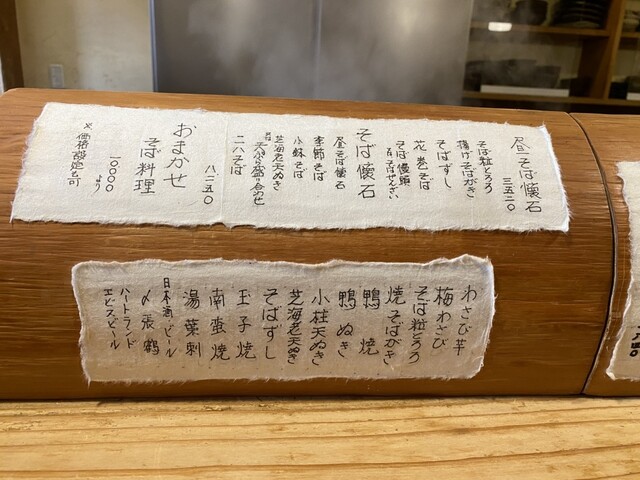 昼そば懐石
三五二〇
そば粒とろろ
揚げそばがき
そばずし
花巻そば
そば饅頭
又はそばぜんざい
そば懐石
昼そば懐石
季節そば
小鉢そば
芝海老天ぬき
天ぷら盛り合わせ
二八そば
八二五〇
おまかせ
そば料理
一〇〇〇〇
より
※価格設定も可
わさび芋
梅わさび
そば粒とろろ
焼そばがき
鴨焼
鴨ぬき
小柱天ぬき
芝海老天ぬき
そばずし
玉子焼
南蛮焼
湯葉刺
日本酒、ビール
〆張鶴
ハートランド
エビスビール